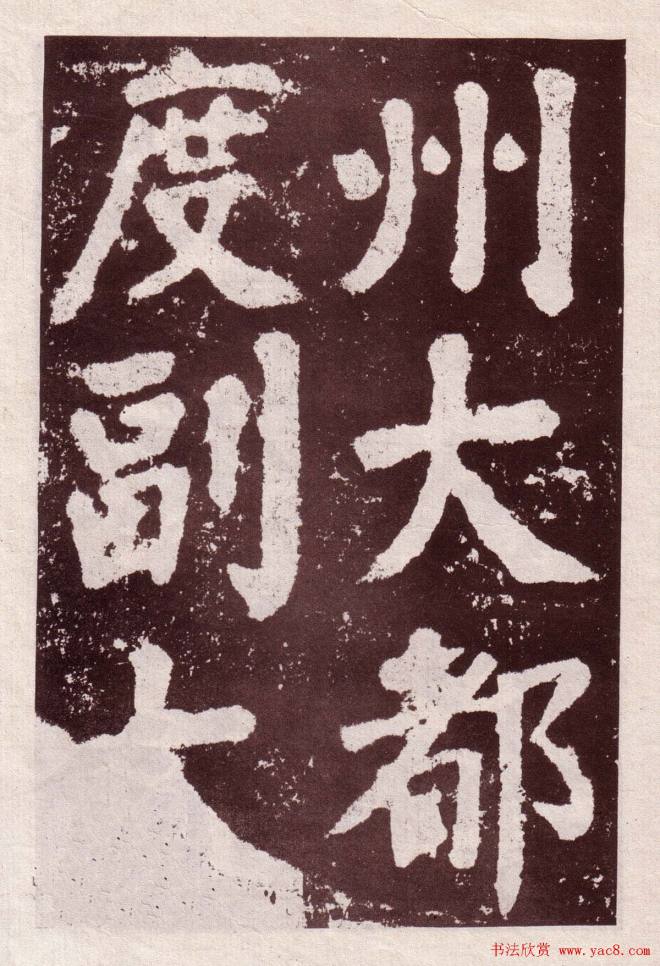 州大都
度副
书法欣赏 www.yac8.com